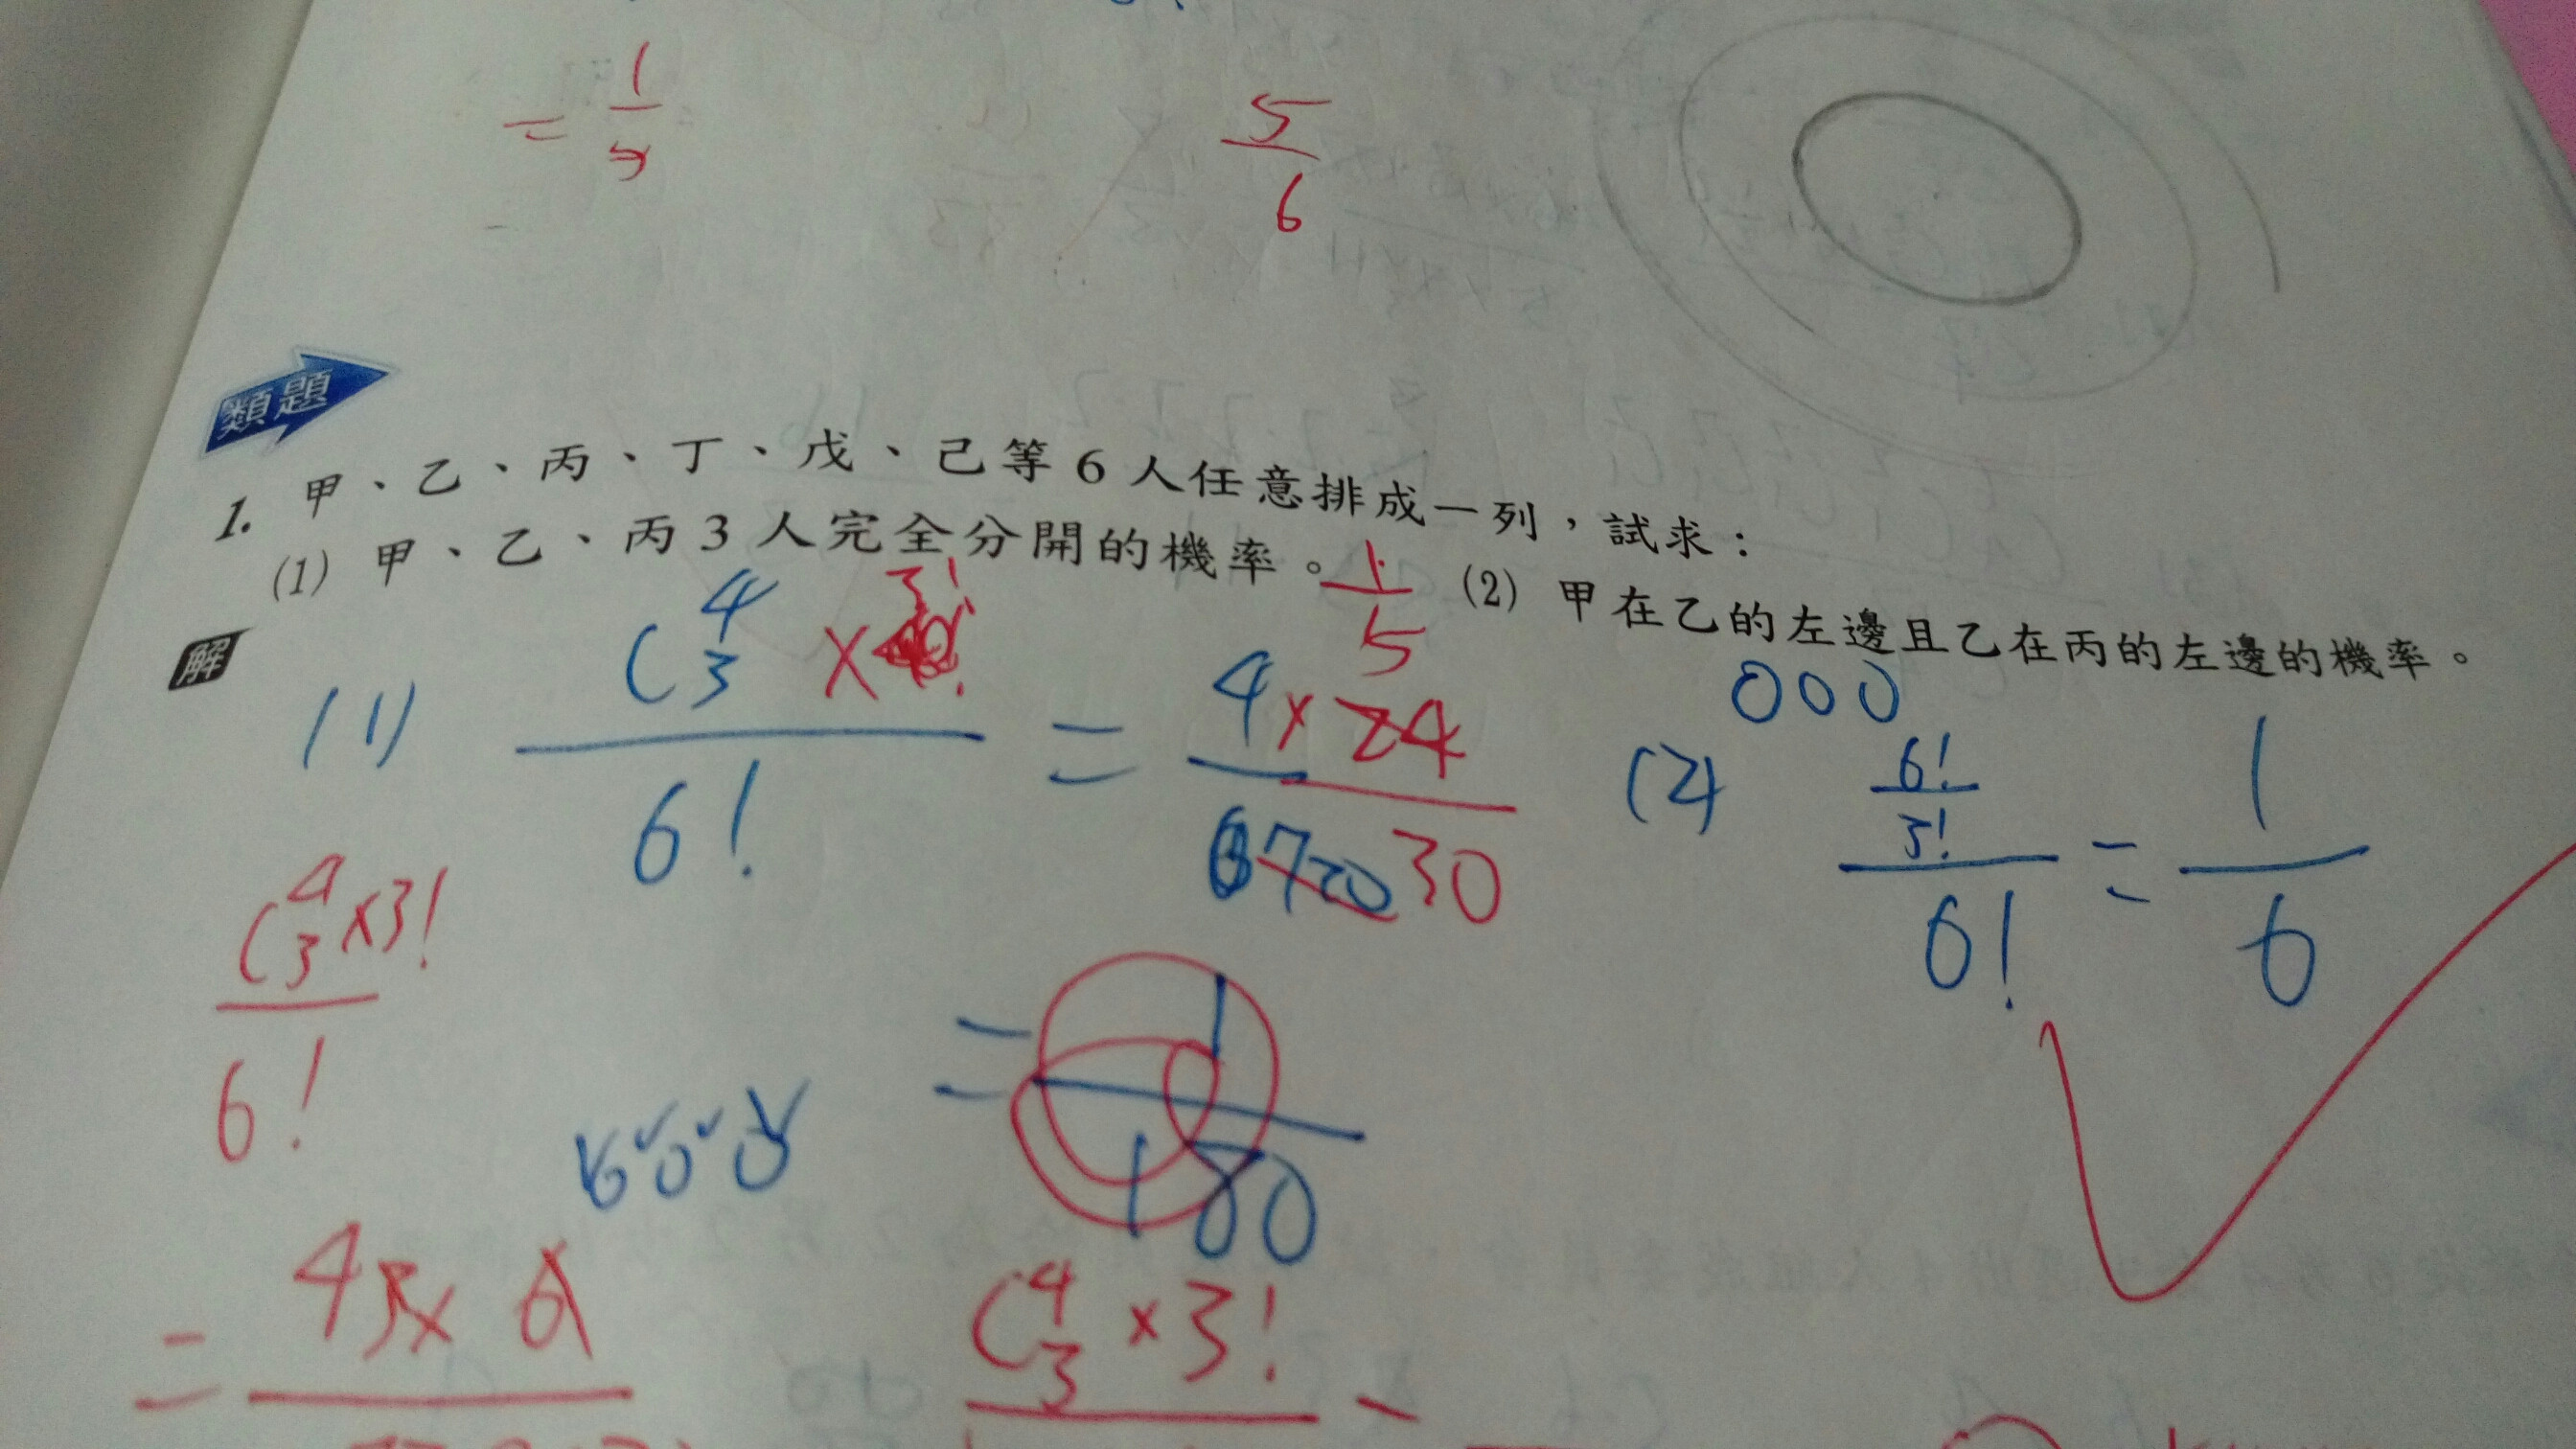 = 1/5
5/6
類題
1. 甲、乙、丙、丁、戊、己等 6 人任意排成一列，試求：
(1) 甲、乙、丙 3 人完全分開的機率。 1/5 (2) 甲在乙的左邊且乙在丙的左邊的機率。
解
(1) C 4 3 × 3! / 6! = 4 × 24 / 720 30
= 1 / 180
000
(2) 6! / 3! / 6! = 1 / 6
C 4 3 × 3! / 6!
C 4 3 × 3!